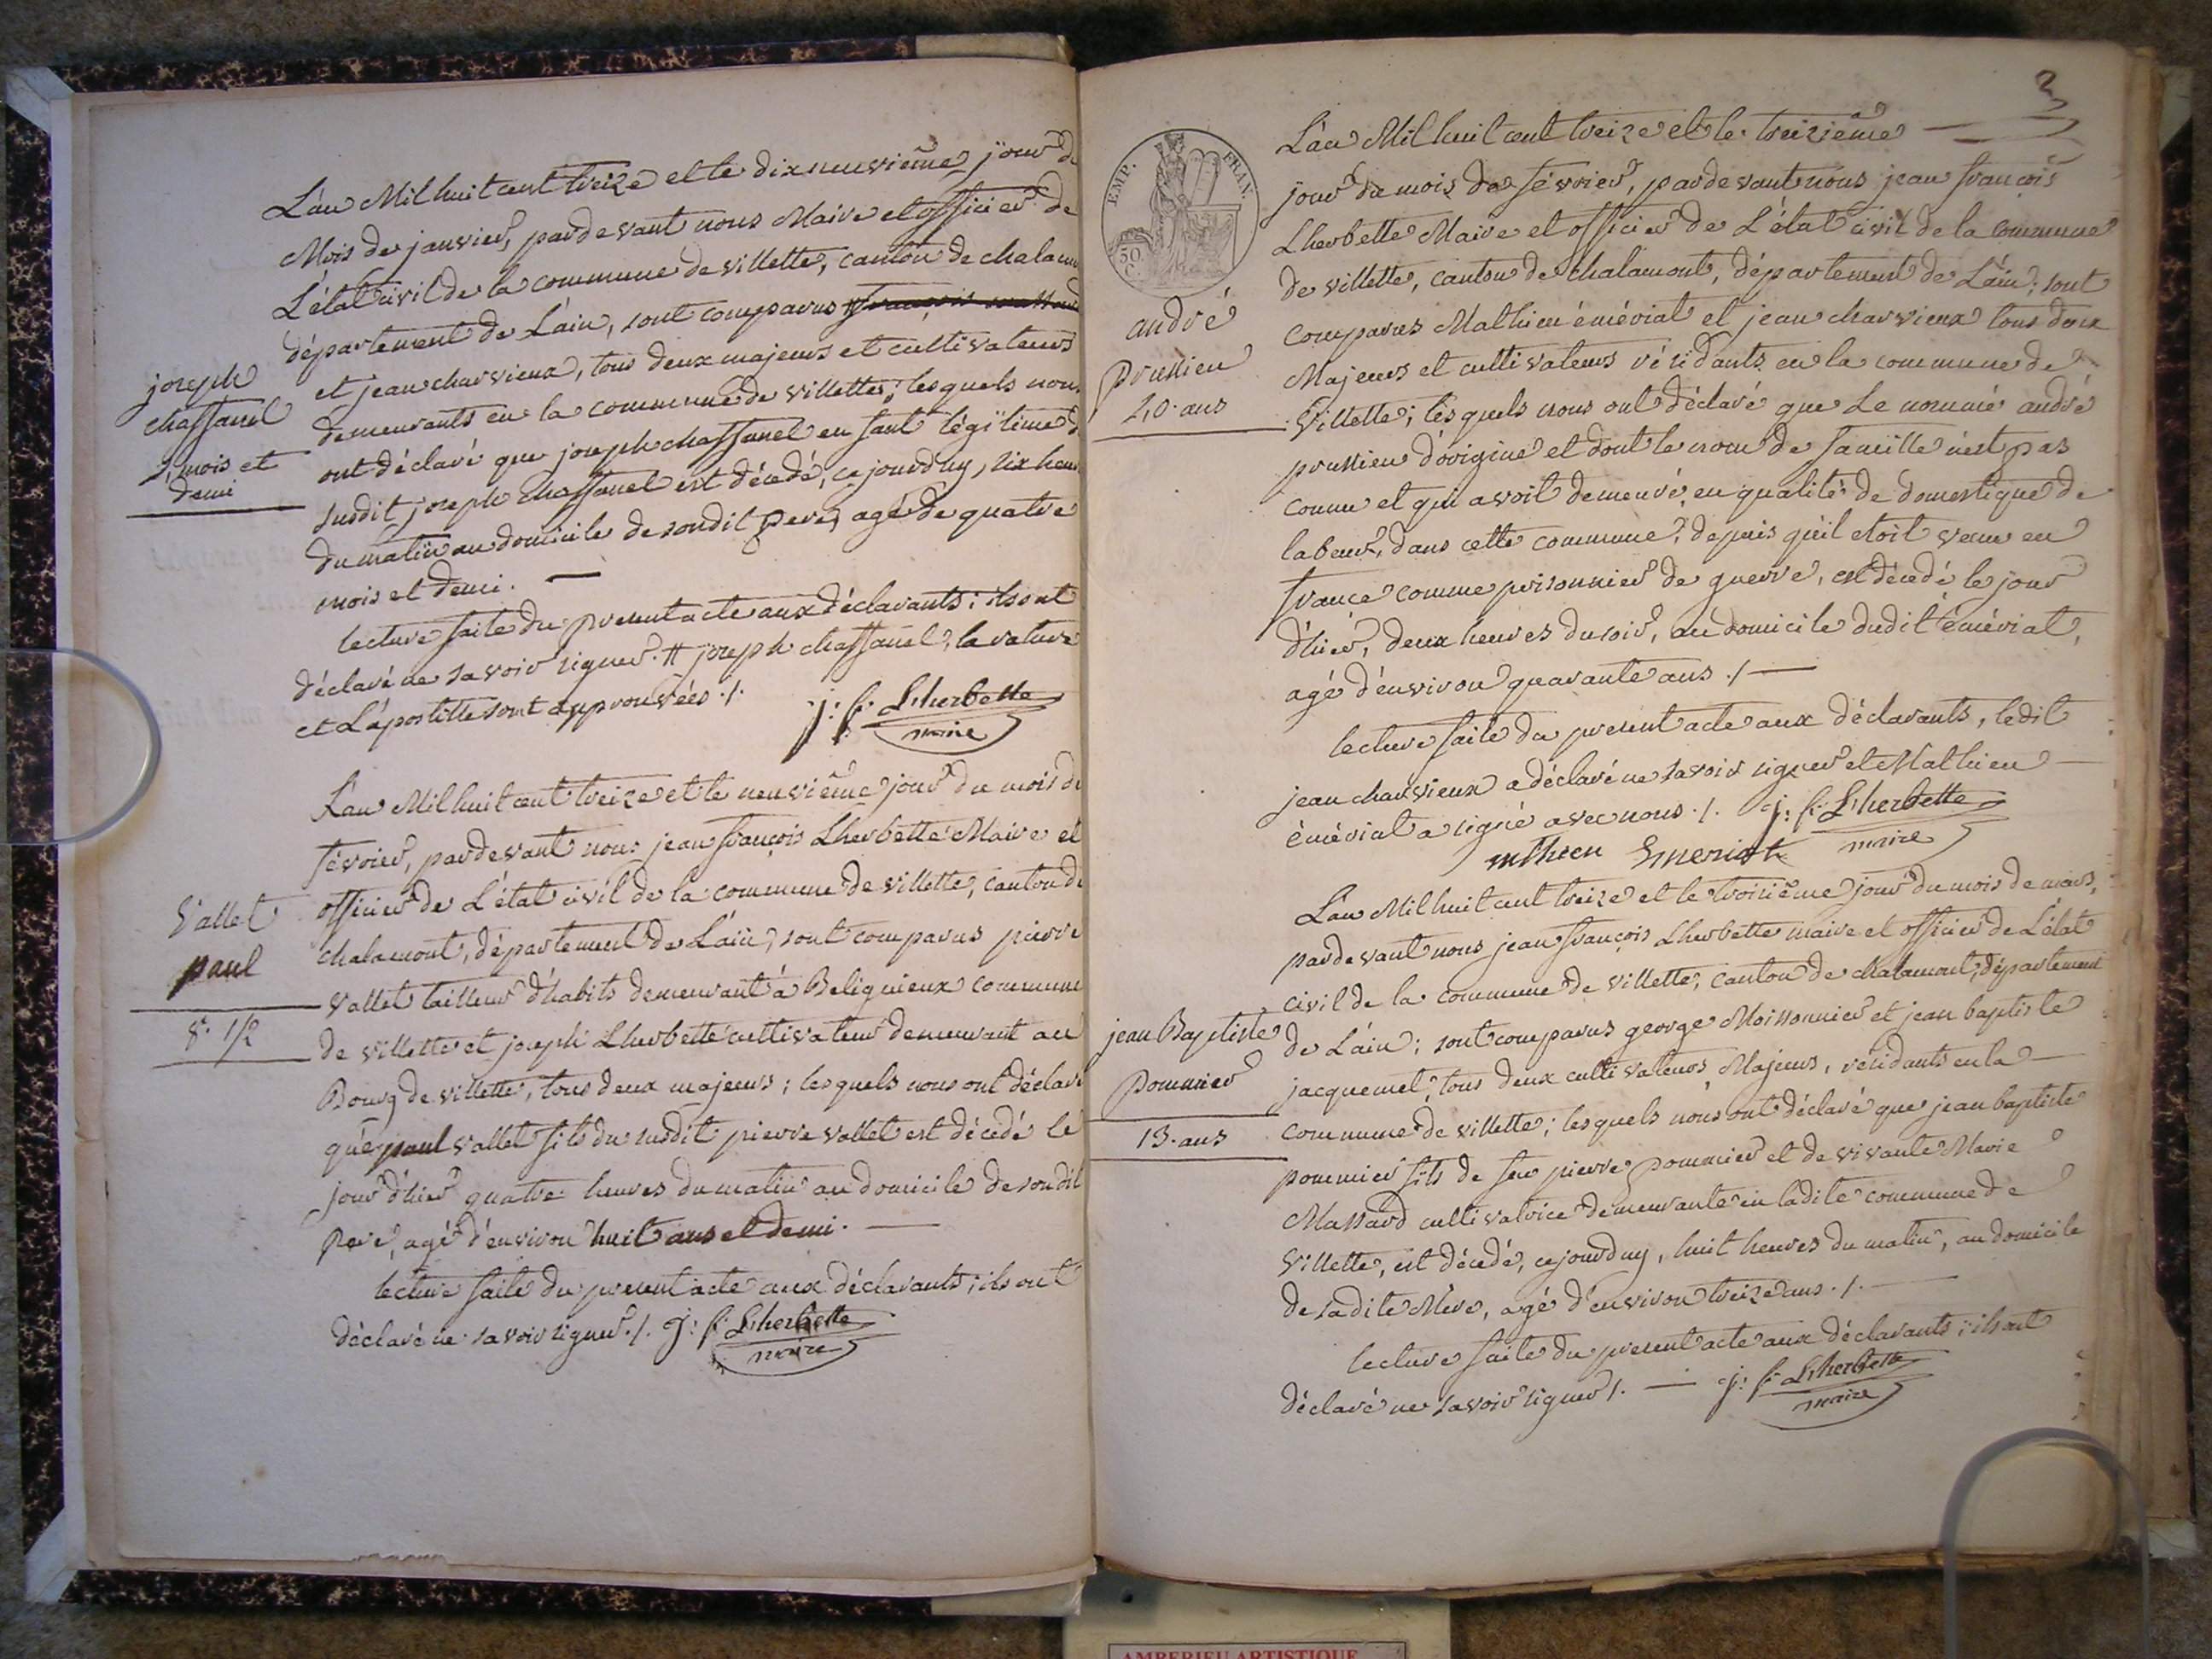 L'an Mil huit cent treize et le dix neuvième jour de
Mois de janvier, pardevant nous Maire et officier de
L'état civil de la commune de villette, canton de chalam
département de L'ain, sont comparus #
et jean charvieux, tous deux majeurs et cultivateurs
demeurants en la commune de villette; lesquels nous
ont déclaré que joseph chassanel enfant légitime d
susdit joseph chassanel est décédé, cejourduy, six heures
du matin au domicile de sondit pere, agé de quatre
mois et demi. —
joseph
chassanel
4 mois et
demi
lecture faite du present acte aux déclarants; ils ont
déclaré ne savoir signer. # joseph chassanel, la rature
et L'apostille sont approuvées ./.
j: f: Lherbette
maire
L'an Mil huit cent treize et le neuvième jour du mois de
février, pardevant nous jean françois Lherbette Maire et
officier de L'état civil de la commune de villette, canton de
chalamont, département de L'ain, sont comparus pierre
vallet tailleur d'habits demeurant à Beligneux commune
de villette et joseph Lherbette cultivateur demeurant au
Bourg de villette, tous deux majeurs; lesquels nous ont déclaré
que paul vallet fils du susdit pierre vallet est décédé le
jour d'hier quatre heures du matin au domicile de sondit
pere, agé d'environ huit ans et demi. —
Vallet
paul
8. 1/2
lecture faite du present acte aux déclarants; ils ont
déclaré ne savoir signer ./. J: f: Lherbette
maire
3
EMP. FRAN.
50 C.
L'an Mil huit cent treize et le treizième —
jour du mois de février, pardevant nous jean françois
Lherbette Maire et officier de L'état civil de la commune
de villette, canton de chalamont, département de L'ain; sont
comparus Mathieu émériat et jean charvieux tous deux
Majeurs et cultivateurs résidants en la commune de
Villette; lesquels nous ont déclaré que Le nommé andré
prussien d'origine et dont le nom de famille n'est pas
connu et qui avoit demeuré en qualité de domestique de
labeur, dans cette commune, depuis qu'il etoit venu en
france comme prisonnier de guerre, est décédé le jour
d'hier, deux heures du soir, au domicile dudit émériat,
agé d'environ quarante ans ./. —
andré
Prussien
40. ans
lecture faite du present acte aux déclarants, ledit
jean charvieux a déclaré ne savoir signer et Mathieu —
émériat a signé avec nous ./. j: f: Lherbette
mthieu Emeriat maire
L'an Mil huit cent treize et le troisième jour du mois de mars,
pardevant nous jean françois Lherbette maire et officier de L'état
civil de la commune de villette, canton de chalamont, département
de L'ain; sont comparus george Moissonnier et jean baptiste
jacquemet, tous deux cultivateurs Majeurs, résidants en la —
commune de villette; lesquels nous ont déclaré que jean baptiste
pommier fils de feu pierre pommier et de vivante Marie
Massard cultivatrice demeurante en ladite commune de
Villette, est décédé, cejourduy, huit heures du matin, au domicile
de sadite Mere, agé d'environ treize ans ./. —
jean Baptiste
Pommier
13. ans
lecture faite du present acte aux déclarants; ils ont
déclaré ne savoir signer ./. — j: f: Lherbette
maire
AMBERIEU ARTISTIQUE